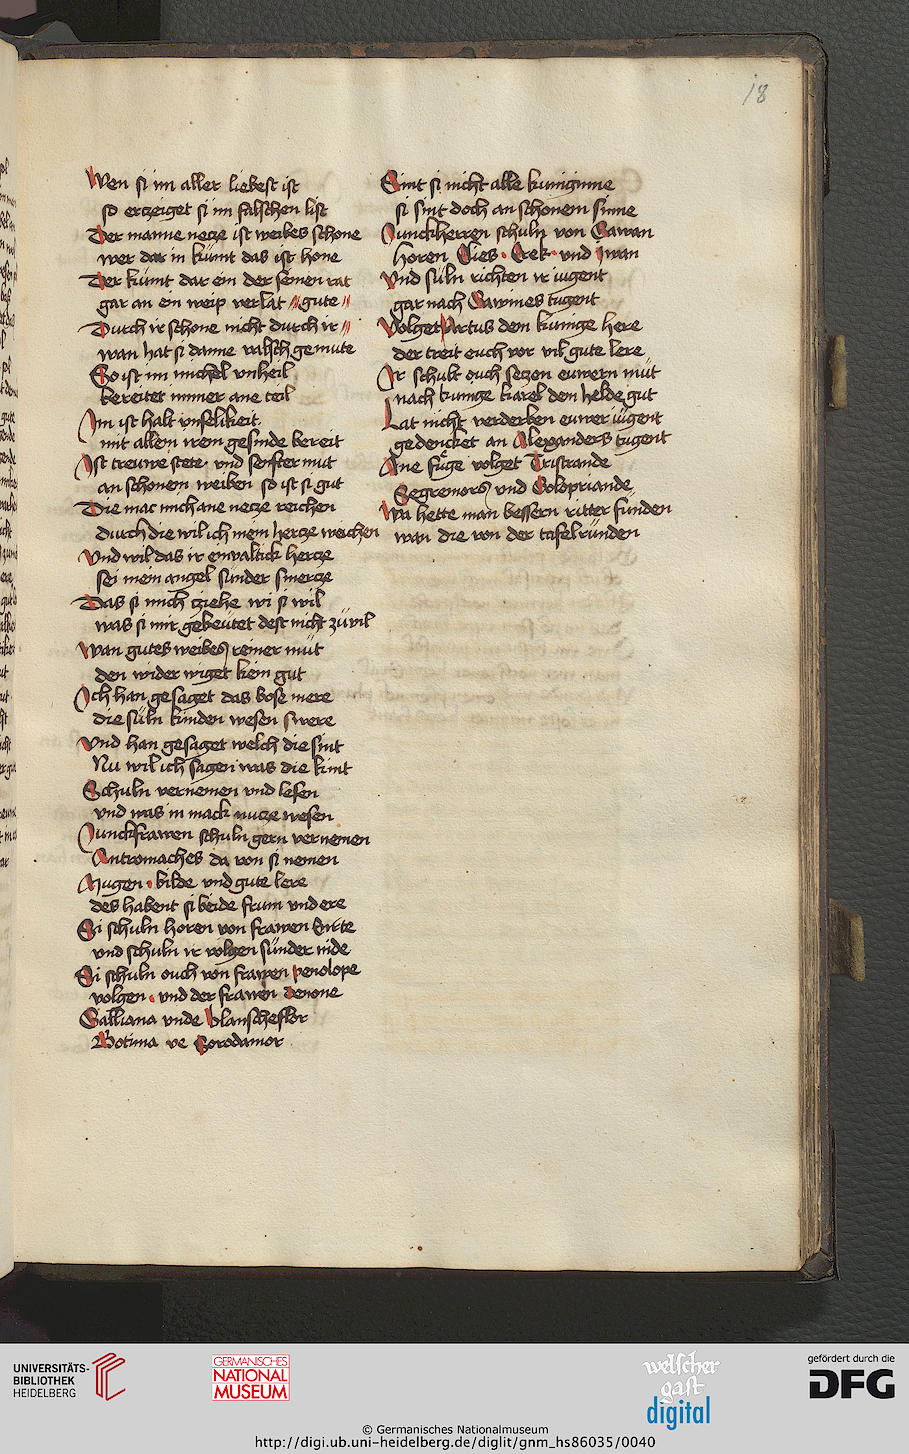 18
Wen si im aller liebest ist
so erczeiget si im falschen list
Der manne necze ist weibes schone
wer dar in kümt das ist hone
Der kümt dar ein der seinen rat
gar an ein weip verlat // gute //
Durch ir schone nicht durch ir //
wan hat si danne valsch gemute
So ist im michel vnheil
bereitet immer ane teil
Im ist halt vnselikieit
mit allem irem gesinde bereit
Ist treuwe stete vnd senfter mut
an schonem weiben so ist si gut
Die mac mich ane necze reichen
durch die wil ich mein hercze weichen
Vnd wil das ir einvaltick hercze
sei mein angel sunder smercze
Das si mich cziehe wi si wil
was si mir gebeutet dest nicht zu vil
Wan gutes weibes reiner mut
den wider wiget kein gut
Ich han gesaget das bose mere
die süln kinden wesen swere
Vnd han gesaget welch die sint
Nu wil ich sagen was die kint
Schuln vernemen vnd lesen
vnd was in mack nucze wesen
Junckfrawen schuln gern vernemen
Antromaches da von si nemen
Mugen bilde vnd gute lere
des habent si beide frum vnd ere
Si schuln horen von frawen Enite
vnd schuln ir volgen sünder nide
Si schuln ouch von frawen penolope
volgen vnd der frawen Oenone
Galliana vnde blanscheflor
Botima ve Sorodamor
Sint si nicht alle kuniginne
si sint doch an schonem sinne
Junckherren schuln von Gawan
horen Clies Erek vnd iwan
Vnd süln richten ir iugent
gar nach Gawines tugent
Volget Artus dem kunige here
der treit euch vor vil gute lere
Ir schult ouch seczen euwern müt
nach kunige karel dem helde gut
Lat nicht verderben euwer iugent
gedencket an Alexanders tugent
Ane fuge volget Tristrande
Segremors vnd Colopriande
Wa hette man bessern ritter funden
wan die von der tafelrunden
UNIVERSITÄTS-
BIBLIOTHEK
HEIDELBERG
GERMANISCHES
NATIONAL
MUSEUM
welscher
gast
digital
gefördert durch die
DFG
© Germanisches Nationalmuseum
http://digi.ub.uni-heidelberg.de/diglit/gnm_hs86035/0040